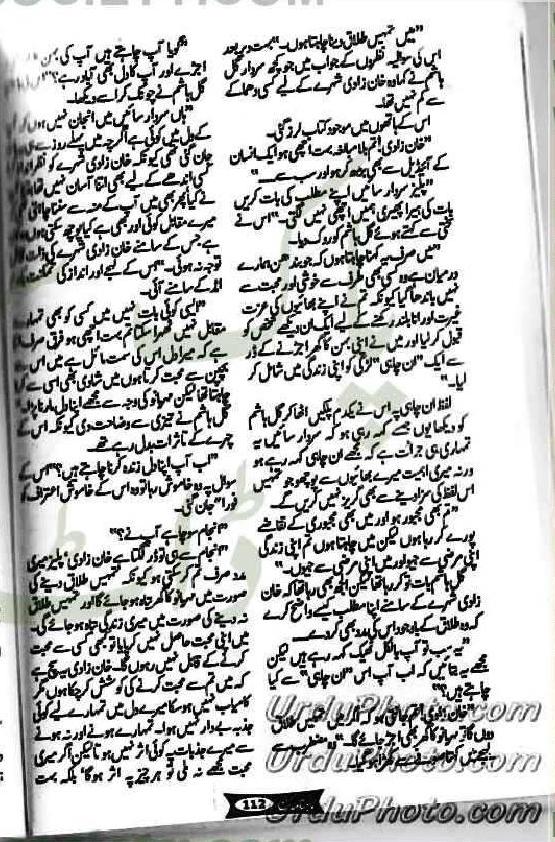 "میں تمہیں طلاق دینا چاہتا ہوں۔" بہت دیر بعد
اس کی سوالیہ نظروں کے جواب میں جو کچھ سردار گل
ہاشم نے کہا وہ خان زادی شہرے کے لیے کسی دھماکے
سے کم نہیں تھا۔
اس کے ہاتھوں میں موجود کتاب لرز گئی۔
"خان زادی! تم بلا مبالغہ بہت اچھی ہو ایک انسان
کے آئیڈیل سے بھی بڑھ کر ہو اور سب سے۔"
"پلیز سردار سائیں اپنے مطلب کی بات کریں
بات کی ہیرا پھیری ہمیں اچھی نہیں لگتی۔" اس نے
سختی سے کہتے ہوئے گل ہاشم کو روک دیا۔
"میں صرف یہ کہنا چاہتا ہوں کہ جو بندھن ہمارے
درمیان ہے وہ کسی بھی طرف سے خوشی اور محبت سے
نہیں باندھا گیا کیونکہ تم نے اپنے بھائیوں کی عزت
غیرت اور انا بلند رکھنے کے لیے ایک ان دیکھے شخص کو
قبول کر لیا اور میں نے اپنی بہن کا گھر اجڑنے کے ڈر
سے ایک "ان چاہی" لڑکی کو اپنی زندگی میں شامل کر
لیا۔"
لفظ ان چاہی پہ اس نے یکدم پلکیں اٹھا کر گل ہاشم
کو دیکھا یوں جیسے کہہ رہی ہو کہ سردار سائیں یہ
تمہاری ہی جرأت ہے کہ مجھے ان چاہی کہہ رہے ہو
ورنہ میری اہمیت میرے بھائیوں سے پوچھو جو تمہیں
اس لفظ کی سزا دینے سے بھی گریز نہیں کریں گے۔
"تم بھی مجبور ہو اور میں بھی مجبوری کے تقاضے
پورے کر رہا ہوں لیکن میں چاہتا ہوں تم اپنی زندگی
اپنی مرضی سے جیو اور میں اپنی مرضی سے جیوں۔"
گل ہاشم بات تو کر رہا تھا لیکن الجھ بھی رہا تھا کہ خان
زادی شہرے کے سامنے اپنا مطلب کیسے واضح کرے
کہ وہ طلاق کے باوجود اس کی مدد بھی کر دے۔
"یہ سب تو آپ بالکل ٹھیک کہہ رہے ہیں لیکن
مجھے یہ بتائیں کہ اب آپ اس "ان چاہی" سے کیا
چاہتے ہیں؟"
"خان زادی! تم جانتی ہو کہ اگر میں تمہیں طلاق
دوں گا تو مہانو کا گھر بھی اجڑ جائے گا۔"
"گویا آپ چاہتے ہیں آپ کی بہن
اجڑے اور آپ کا دل بھی آباد رہے؟"
گل ہاشم نے چونک کر اسے دیکھا۔
"ہاں سردار سائیں میں انجان نہیں ہوں
کے دل میں کوئی ہے اگرچہ میں پہلے روز سے ہی
جان گئی تھی کیونکہ خان زادی شہرے کو نظر انداز
کسی اندھے کے لیے بھی اتنا آسان نہیں تھا
نے کیا پھر بھی میں آپ کے منہ سے سننا چاہتی
میرے مقابل کوئی اور بھی ہے کیا پوچھ سکتی ہوں
ہے جس کے سامنے خان زادی شہرے کی ذات
توجہ نہ ہوئی۔" اس کے لہجے اور انداز کی تمکنت
لڈ کے سامنے آئی۔
"ایسی کوئی بات نہیں میں کسی کو بھی تمہارے
مقابل نہیں ٹھہرا سکتا تم بہت اچھی ہو فرق صرف
ہے کہ میرا دل اس کی سمت مائل ہے میں اس
بچپن سے محبت کرتا ہوں میں شادی بھی اسی سے
چاہتا تھا لیکن مہانو کی وجہ سے مجھے اپنا دل مارنا پڑا۔"
گل ہاشم نے تیزی سے وضاحت دی کیونکہ اس کے
چہرے کے تاثرات بدل رہے تھے۔
"اب آپ اپنا دل زندہ کرنا چاہتے ہیں؟" اس کے
سوال پہ وہ خاموش رہا تو وہ اس کے خاموش اعتراف کو
فوراً جان گئی۔
"انجام سوچا ہے آپ نے؟"
"انجام سے ہی تو ڈر لگتا ہے خان زادی! پلیز میری
مدد صرف تم کر سکتی ہو کیونکہ تمہیں طلاق دینے کی
صورت میں مہانو کا گھر تباہ ہو جائے گا اور تمہیں طلاق
نہ دینے کی صورت میں میری زندگی تباہ ہو جائے گی۔
میں اپنی محبت حاصل نہیں کر پایا تو بھی کسی سے محبت
کرنے کے قابل نہیں رہوں گا۔ خان زادی یہ سچ ہے
کہ میں تم سے محبت کرنے کی کوشش کر چکا ہوں مگر
کامیاب نہیں ہو سکا میرے دل میں تمہارے لیے کوئی
جذبہ بیدار نہیں ہوا۔ تمہارے ہونے اور نہ ہونے
سے میرے جذبات پہ کوئی اثر نہیں ہوتا لیکن اگر میری
محبت مجھے نہ ملی تو ہر چیز پہ اثر ہوگا بلکہ بہت
112
UrduPhoto.com
UrduPhoto.com
UrduPhoto.com